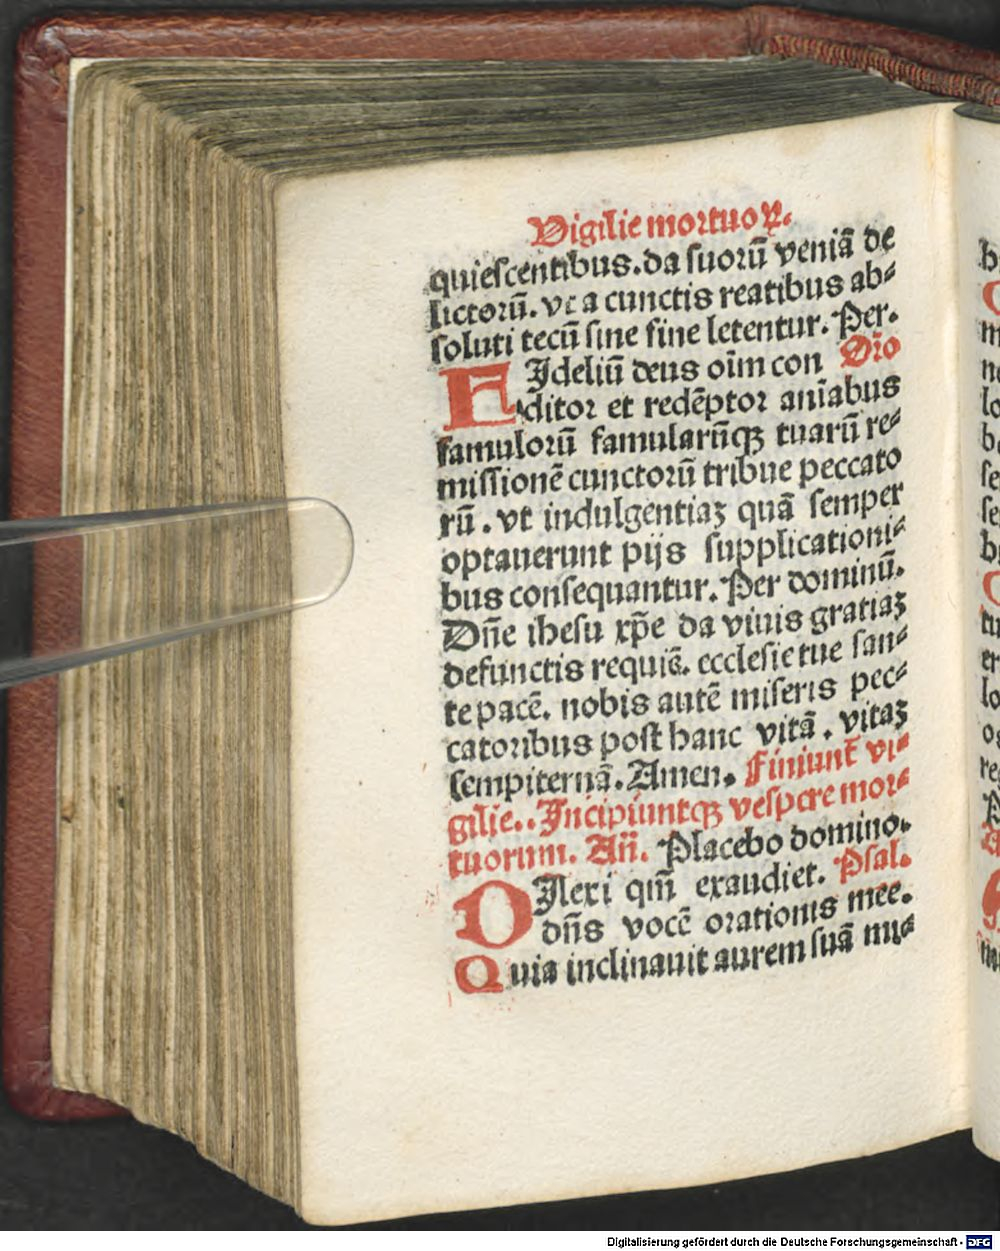 Vigilie mortuoꝝ.
quiescentibus. da suorū veniā de
lictorū. vt a cunctis reatibus ab⸗
soluti tecū sine fine letentur. Per.
FIdeliū deus oīm con Orō
ditor et redēptor aniābus
famulorū famularūqꝫ tuarū re⸗
missionē cunctorū tribue peccato
rū . vt indulgentiaꝫ quā semper
optauerunt pijs supplicationi⸗
bus consequantur. Per dominū.
Dn̄e ihesu xp̄e da viuis gratiaꝫ
defunctis requiē. ecclesie tue san⸗
te pacē. nobis autē miseris pec⸗
catoribus post hanc vitā . vitaꝫ
sempiternā. Amen. Finiunt̄ vi⸗
gilie. . Incipiuntqꝫ vespere mor⸗
tuorum. Añ. Placebo domino.
DIlexi qm̄ exaudiet. Psal.
dn̄s vocē orationis mee.
Quia inclinauit aurem suā mi⸗
Digitalisierung gefördert durch die Deutsche Forschungsgemeinschaft - DFG